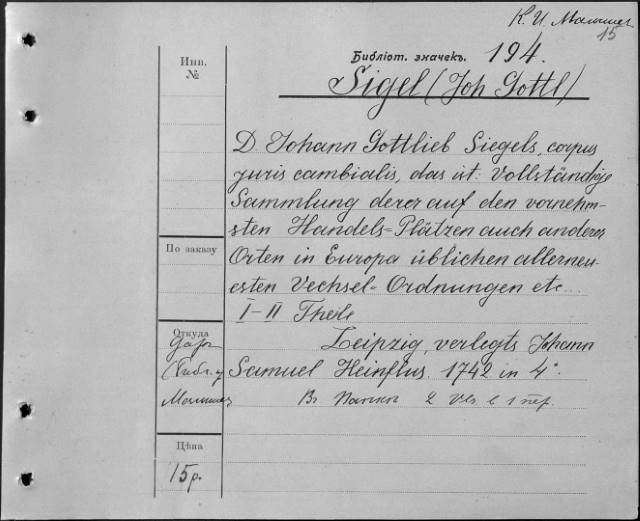 К. И.
15
Библіот. значекъ. 194.
Sigel (Joh Gottl)
Инв. №
D. Johann Gottlieb Siegels, corpus
juris cambialis, das ist: Vollständige
Sammlung derer auf den vornehm-
sten Handels=Plätzen auch anderer
По заказу
Orten in Europa üblichen allerneu-
esten Vechsel=Ordnungen etc...
I-II Theile
Откуда
Leipzig, verlegts Johann
Даръ
Samuel Heinflus. 1742 in 4°.
(библ.
2 Vls. в 1 пер.
Цѣна
15 р.